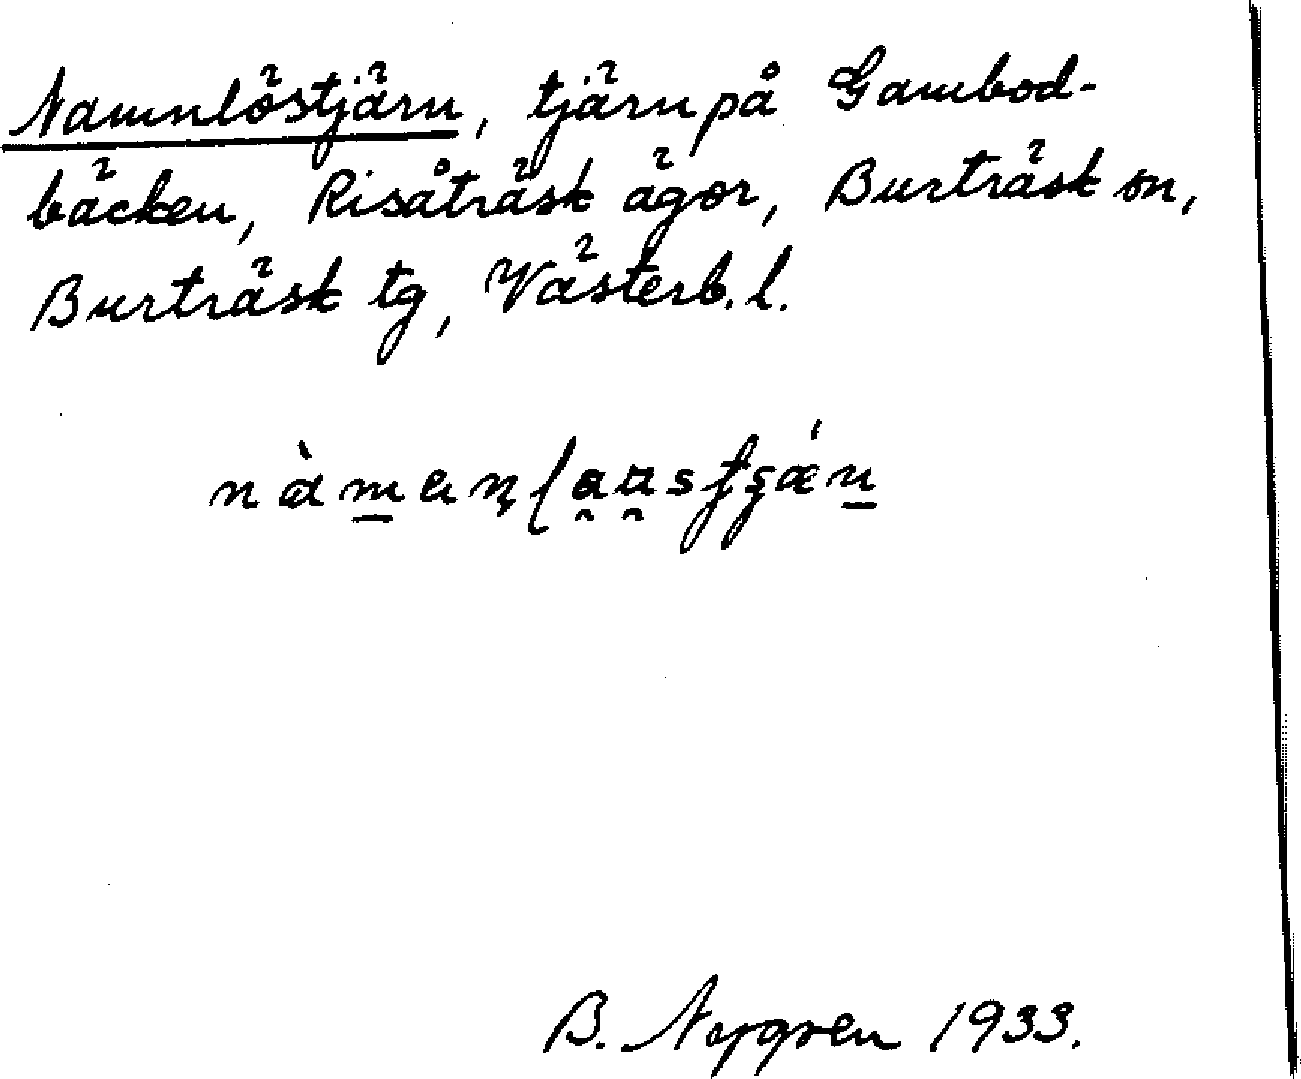 Namnlöstjärn, tjärn på Gambod-
bäcken, Risåträsk ägor, Burträsk sn,
Burträsk tg, Västerb. l.
B. Nygren 1933.